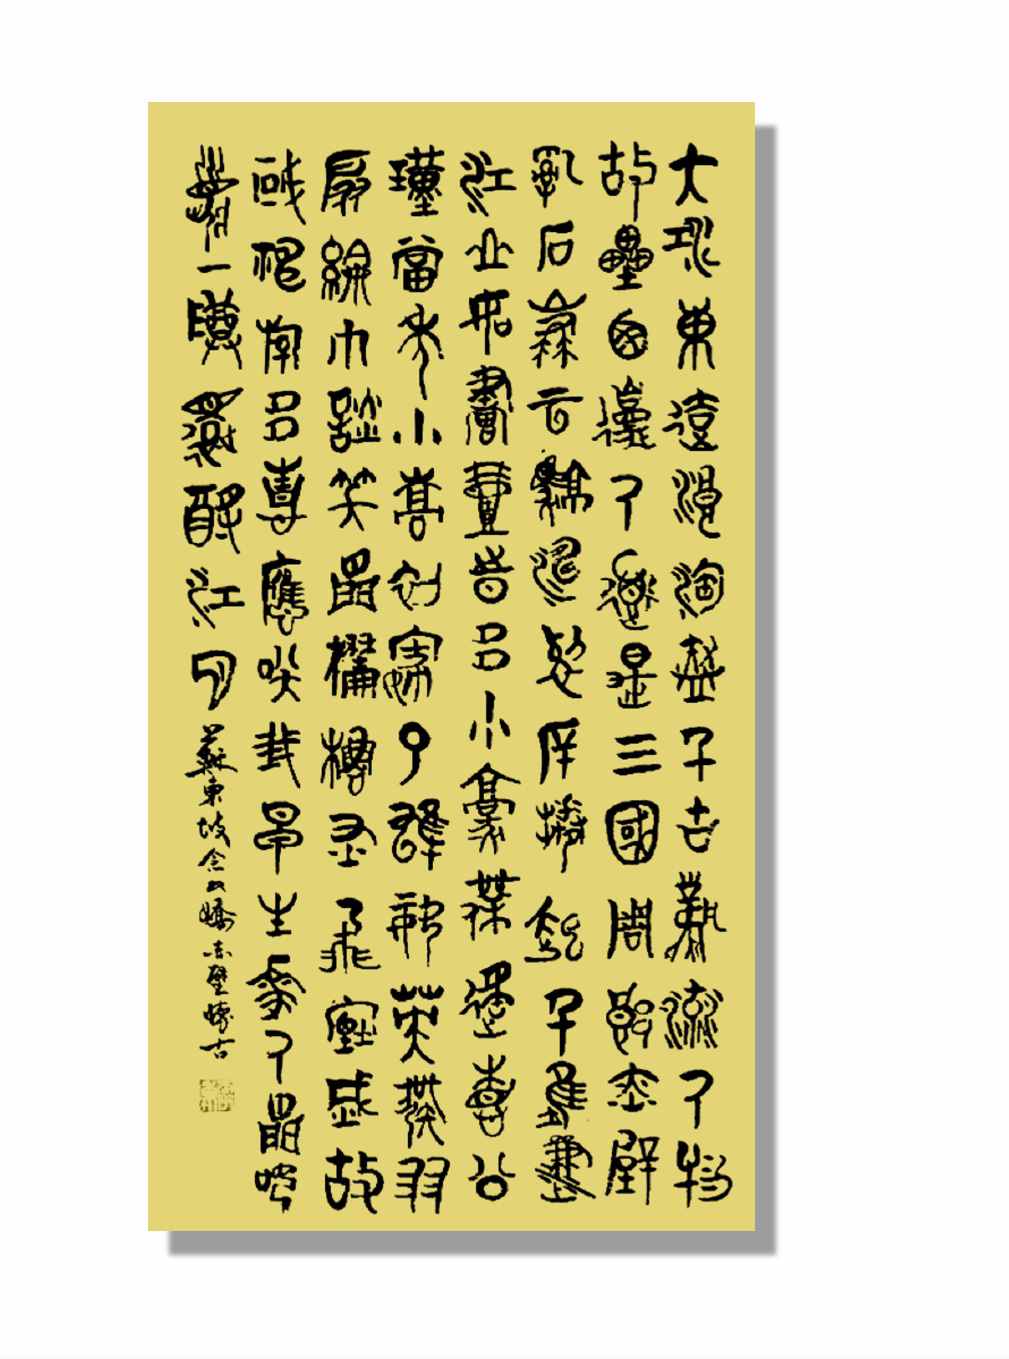 大江東去浪淘盡千古風流人物
故壘西邊人道是三國周郎赤壁
亂石崩雲驚濤裂岸捲起千堆雪
江山如畫一時多少豪傑遙想公
瑾當年小喬初嫁了雄姿英發羽
扇綸巾談笑間檣櫓灰飛煙滅故
國神遊多情應笑我早生華髮人間如
夢一樽還酹江月 蘇東坡念奴嬌赤壁懷古